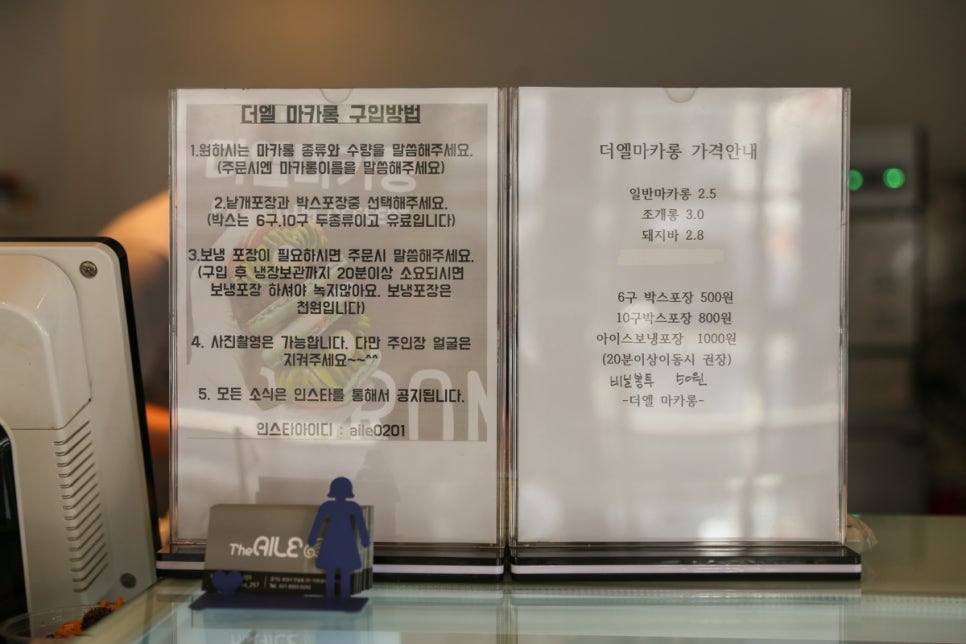 더엘 마카롱 구입방법
1.원하시는 마카롱 종류와 수량을 말씀해주세요.
(주문시엔 마카롱이름을 말씀해주세요)
2.낱개포장과 박스포장중 선택해주세요.
(박스는 6구,10구 두종류이고 유료입니다)
3.보냉 포장이 필요하시면 주문시 말씀해주세요.
(구입 후 냉장보관까지 20분이상 소요되시면
보냉포장 하셔야 녹지않아요. 보냉포장은
천원입니다)
4. 사진촬영은 가능합니다. 다만 주인장 얼굴은
지켜주세요~~^^
5. 모든 소식은 인스타를 통해서 공지됩니다.
인스타아이디 : aile0201
더엘마카롱 가격안내
일반마카롱 2.5
조개롱 3.0
돼지바 2.8
6구 박스포장 500원
10구박스포장 800원
아이스보냉포장 1000원
(20분이상이동시 권장)
비닐봉투 50원
-더엘 마카롱-
The AILE